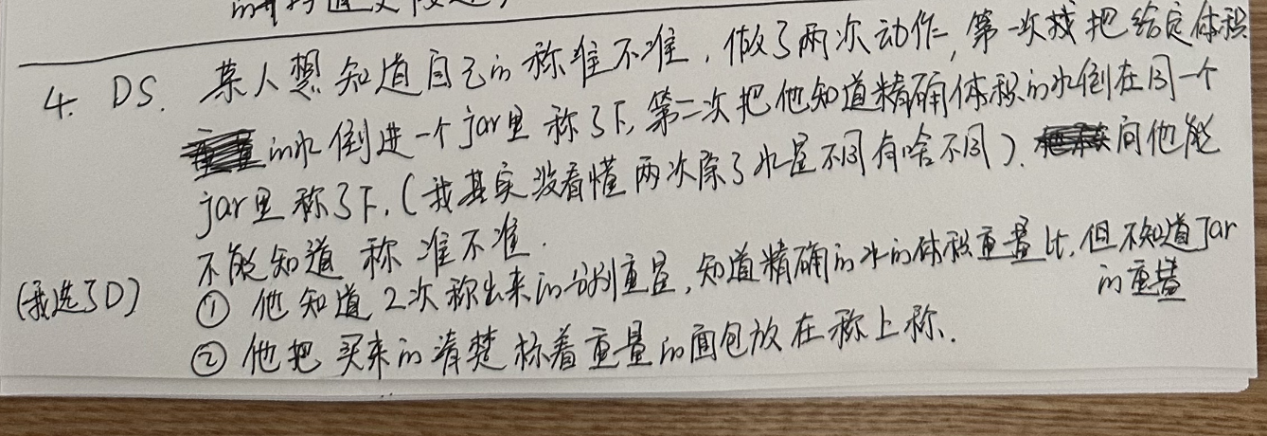 4. DS. 某人想知道自己的称准不准，做了两次动作，第一次找把给定体积
的水倒进一个jar里称了下，第二次把他知道精确体积的水倒在同一个
jar里称了下，(我其实没看懂两次除了水量不同有啥不同). 问他能
不能知道称准不准.
(我选了D) ① 他知道2次称出来的分别重量，知道精确的水的体积重量比，但不知道Jar
的重量
② 他把买来的清楚标着重量的面包放在称上称.